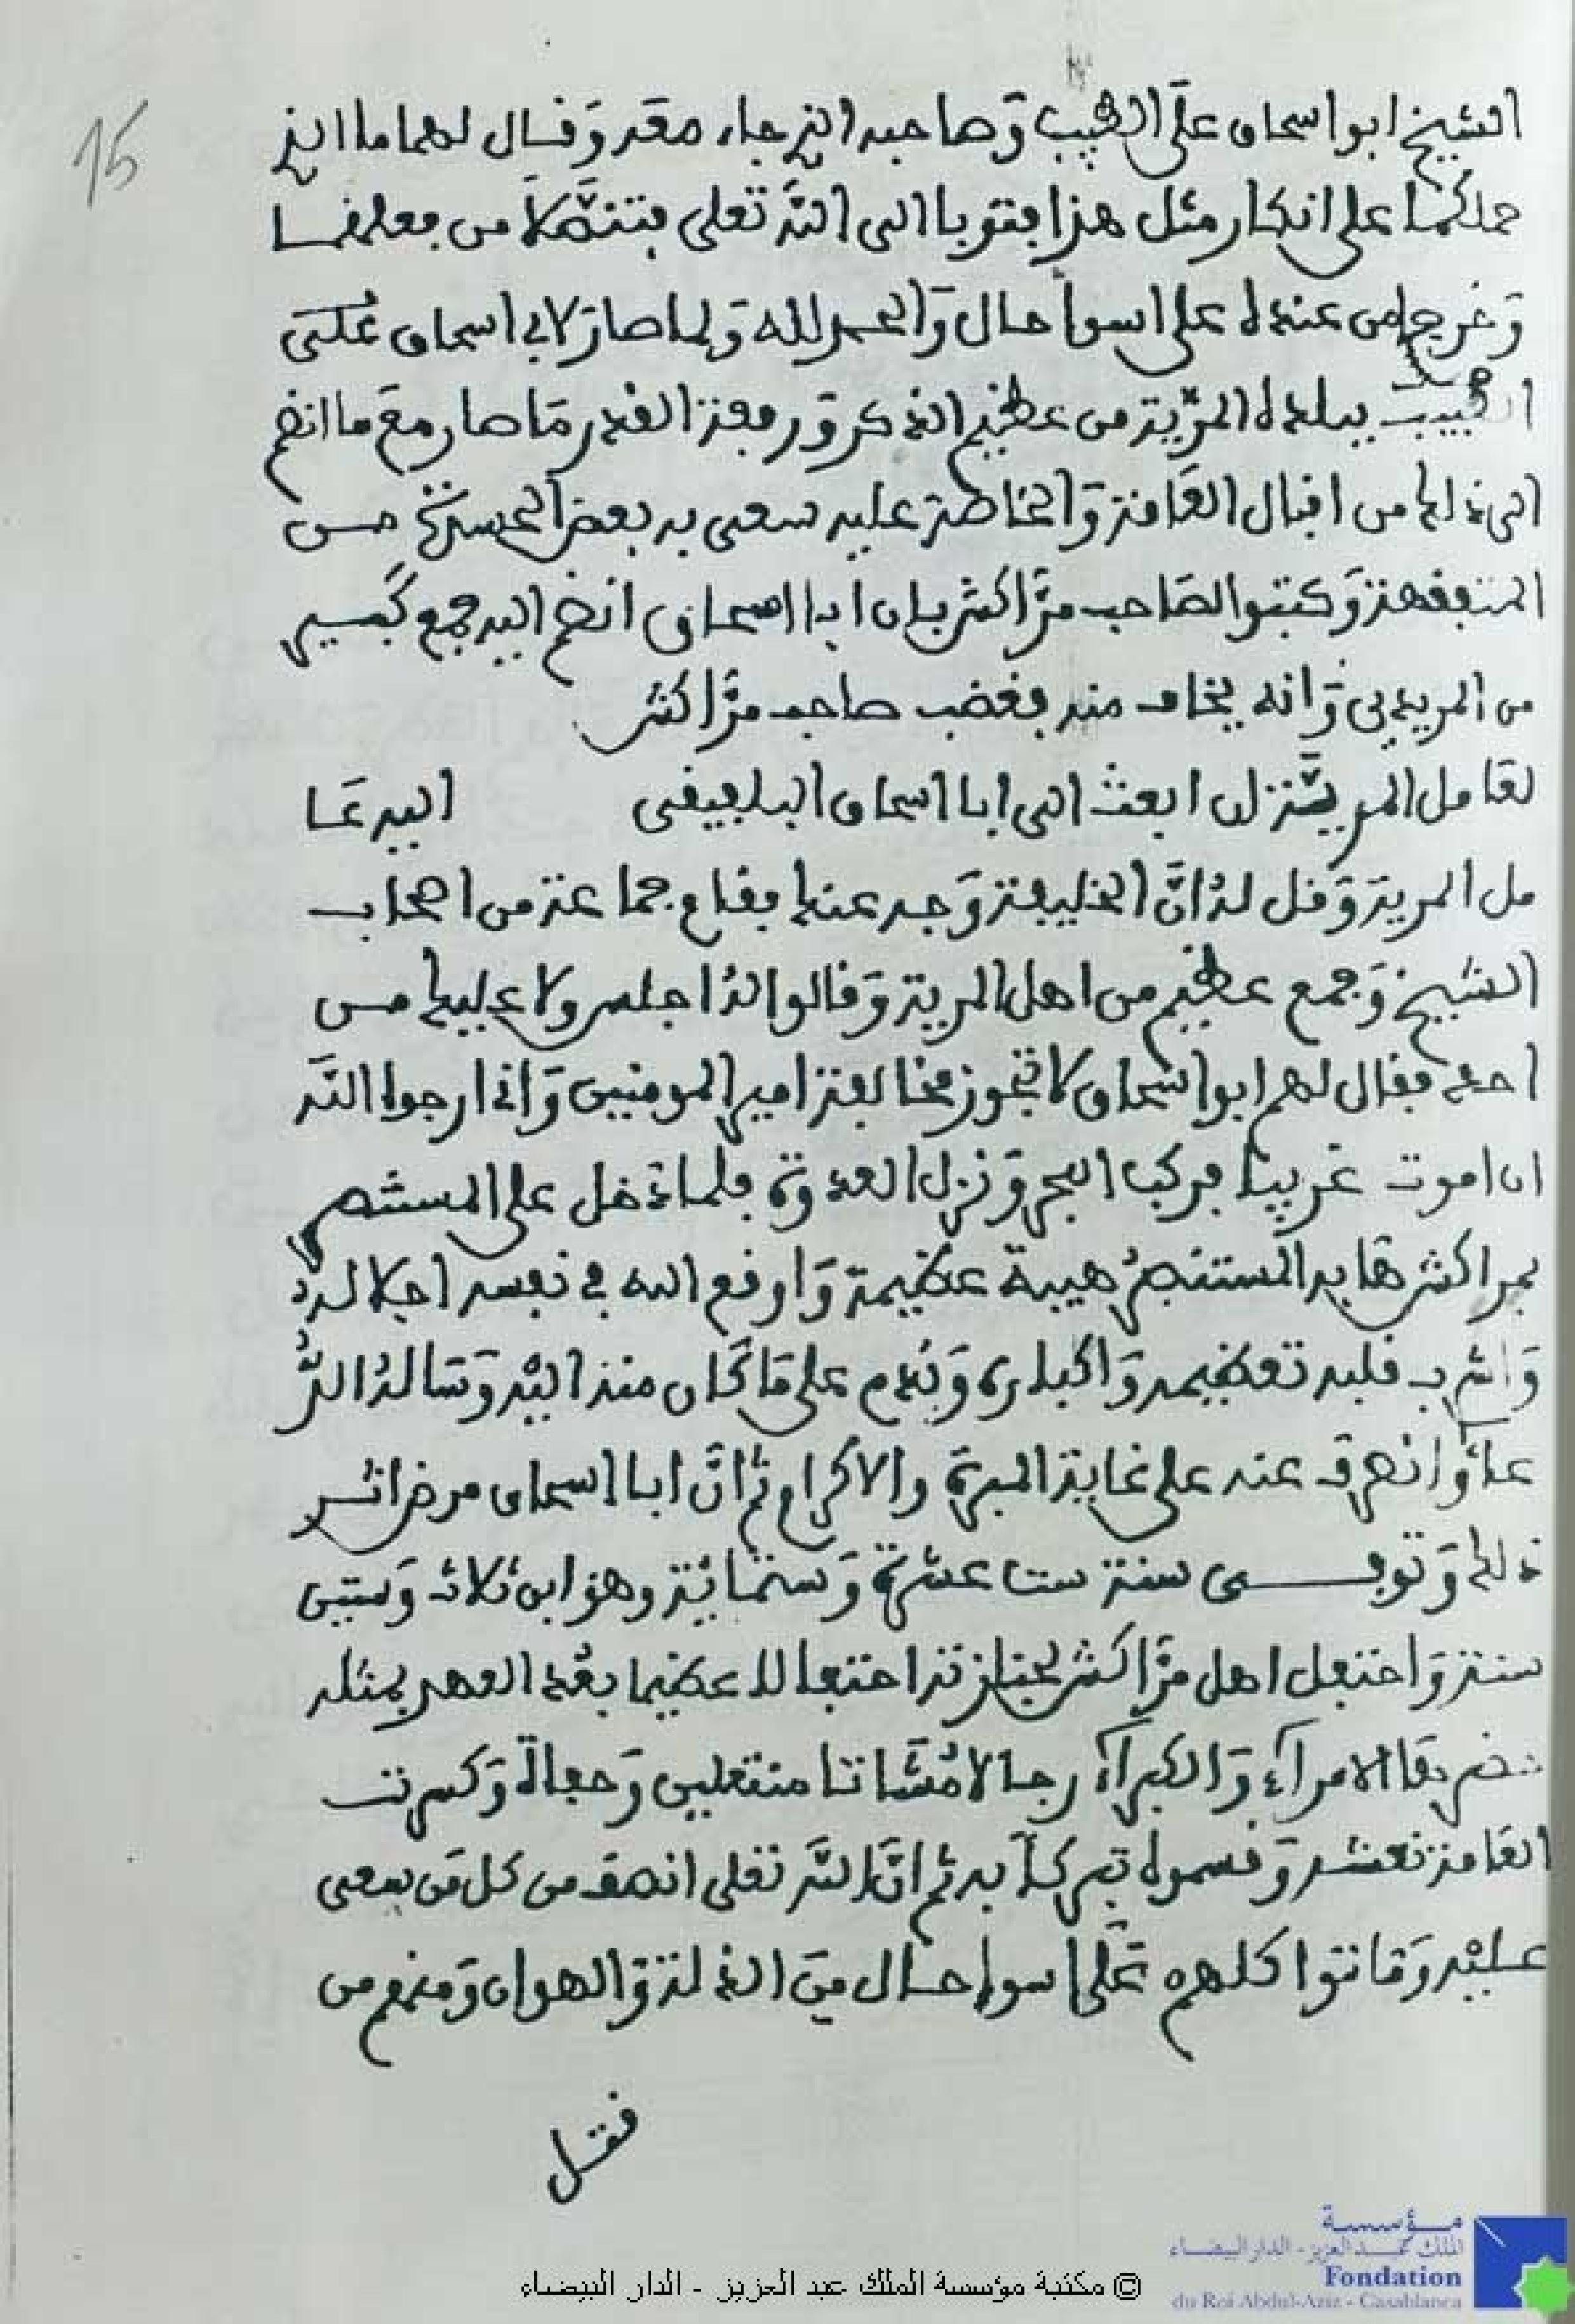 15
الشيخ ابو اسحاق على الطبيب وصاحبه الذي جاء معه وقال لهما ما الذي
حملكما على انكار مثل هذا فتوبا الى الله تعلى فتنصلا من فعلهما
وخرجا من عنده على اسوأ حال والحمد لله ولما صار لابي اسحاق
ببلده المرية من عظيم الذكر ورفعة القدر ما صار مع ما انضم
الى ذلك من اقبال العامة والخاصة عليه سعى به بعض الحسدة من
المتفقهة وكتبوا لصاحب مراكش بان ابا اسحاق انضم اليه جمع كبير
من المريدين وانه يخاف منه فغضب صاحب مراكش
لعامل المرية ان ابعث الى ابا اسحاق البلفيقى اليه عا
مل المرية وقل له ان الخليفة وجه عنك فقام جماعة من اصحاب
الشيخ وجمع عظيم من اهل المرية وقالوا له اجلس ولا عليك من
احد فقال لهم ابو اسحاق لا تجوز مخالفة امير المومنين وانا ارجوا الله
ان اموت غريبا فركب البحر ونزل العدوة فلما دخل على المستنصر
بمراكش هابه المستنصر هيبة عظيمة واوقع الله في نفسه اجلاله
واشرب قلبه تعظيمه واكباره وندم على ما كان منه اليه وساله الد
عاء وانصرف عنه على غاية المبرة والاكرام ثم ان ابا اسحاق مرض اثر
ذلك وتوفى سنة ست عشرة وستمائة وهو ابن ثلاث وستين
سنة واحتفل اهل مراكش لجنازته احتفالا عظيما بعد العهد بمثله
حضرها الامرآء والكبرآء رجالا مشاتا منتعلين وحفاة وكسرت
العامة نعشه وقسموه تبركا به ثم ان الله تعلى انتصف من كل من سعى
عليه وماتوا كلهم على اسوإ حال من الذلة والهوان ومنهم من
قتل
مؤسسة
الملك عبد العزيز - الدار البيضاء
Fondation
du Roi Abdul-Aziz - Casablanca
© مكتبة مؤسسة الملك عبد العزيز - الدار البيضاء